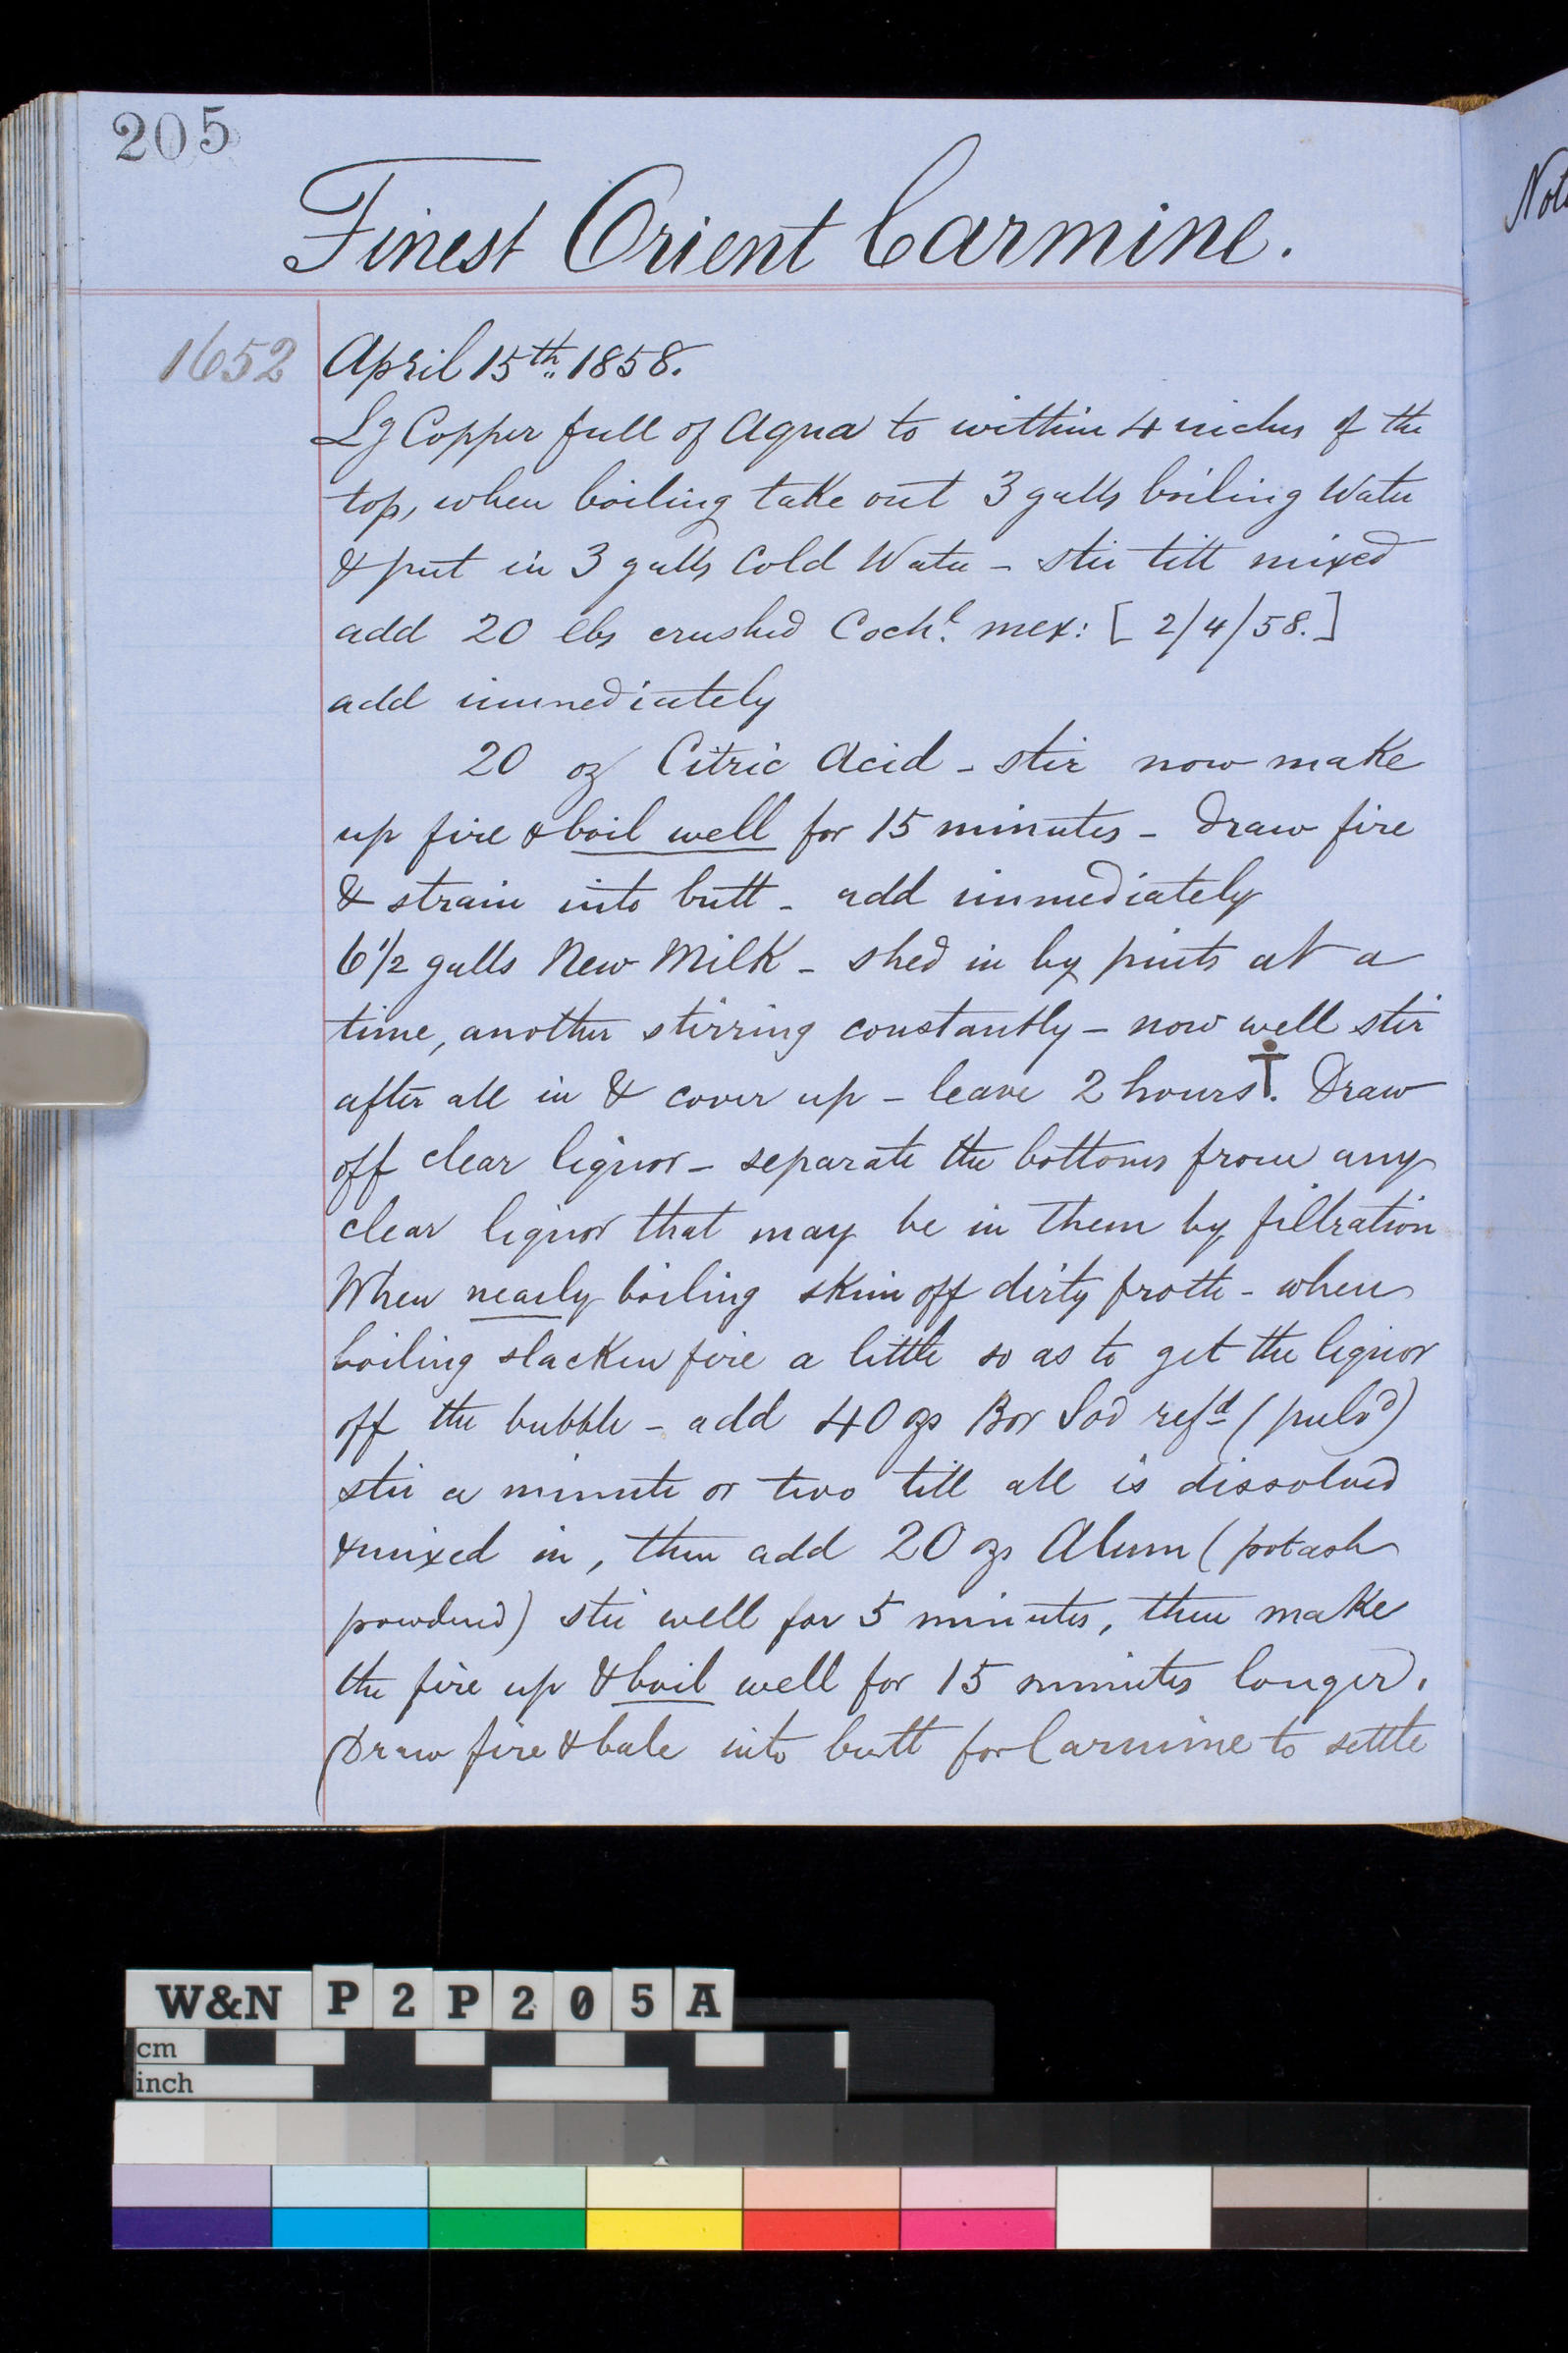 205
Finest Orient Carmine.
Not
1652
April 15th 1858.
Lg Copper full of Aqua to within 4 inches of the
top, when boiling take out 3 galls boiling Water
& put in 3 galls Cold Water – stir till mixed
add 20 lbs crushed Cochl mex: [2/4/58.]
add immediately
20 oz Citric Acid – stir now make
up fire & boil well for 15 minutes – Draw fire
& strain into butt – add immediately
6 1/2 galls New Milk – shed in by pints at a
time, another stirring constantly – now well stir
after all in & cover up – leave 2 hours†. Draw
off clear liquor – separate the bottoms from any
clear liquor that may be in them by filtration
When nearly boiling skim off dirty froth – when
boiling slacken fire a little so as to get the liquor
off the bubble – add 40 ozs Bor Sod refd (pulvd)
stir a minute or two till all is dissolved
& mixed in, then add 20 ozs Alum (potash
powdered) stir well for 5 minutes, then make
the fire up & boil well for 15 minutes longer.
Draw fire & bale into butt for Carmine to settle
W&N P2P205A
cm
inch